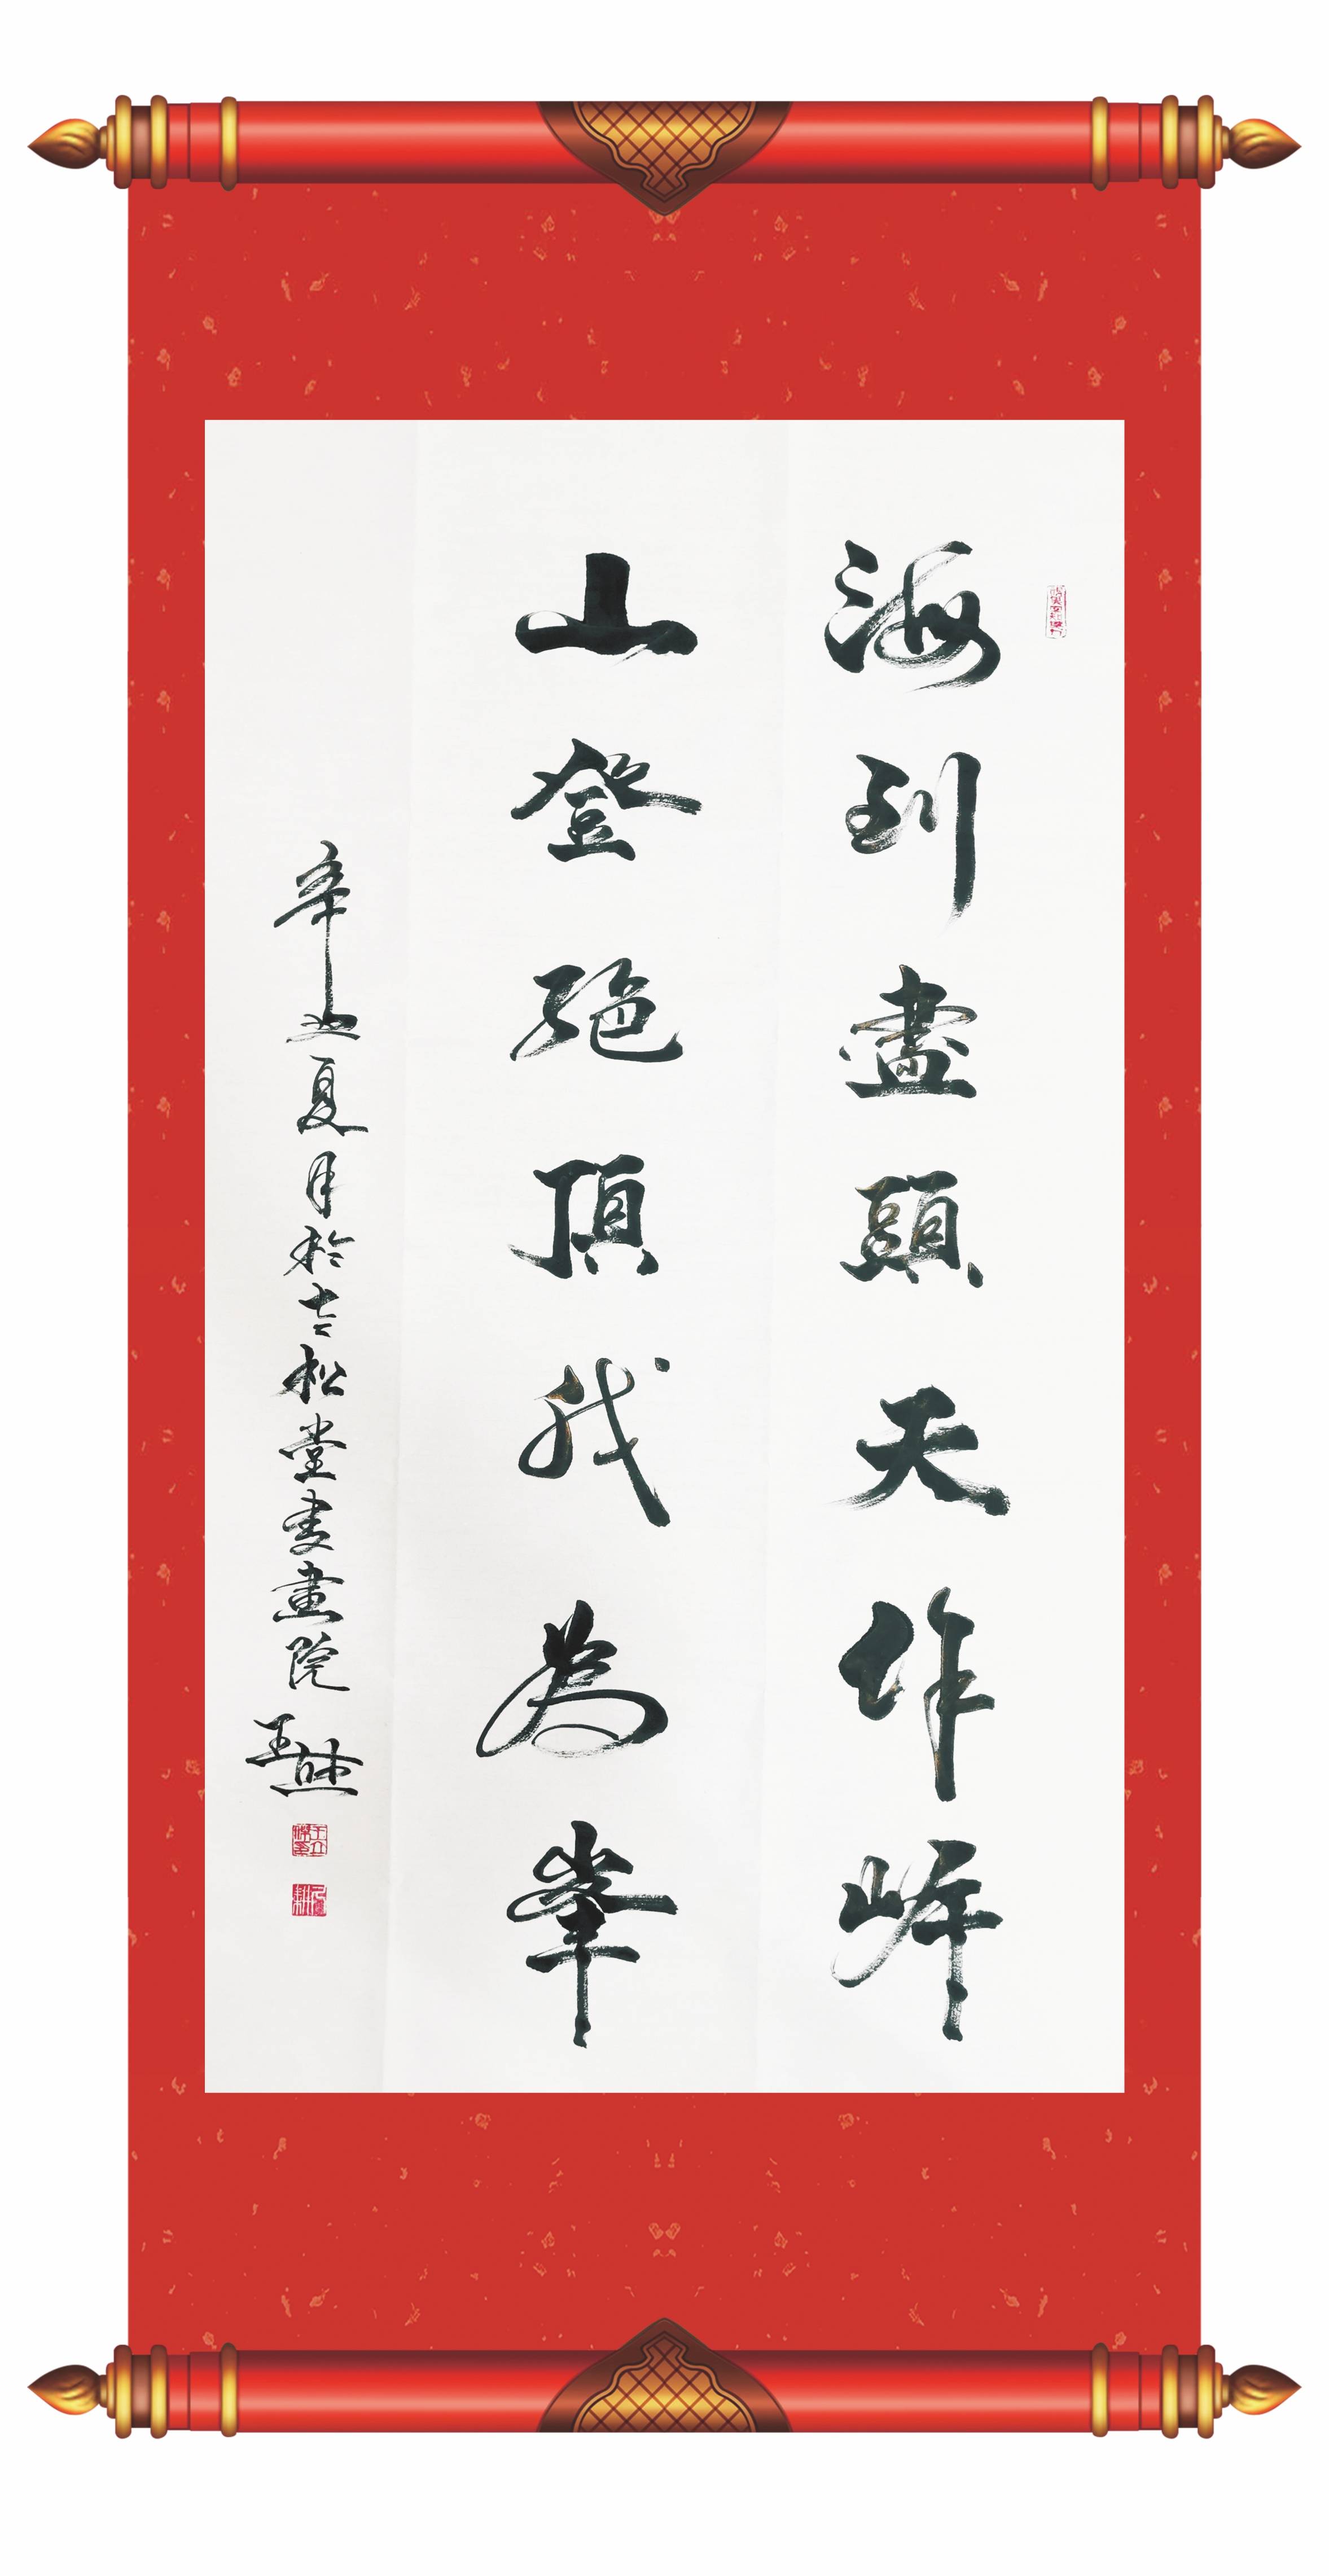 海到盡頭天作岸
山登絶頂我為峯
辛丑夏月於吉松堂書畫院 王